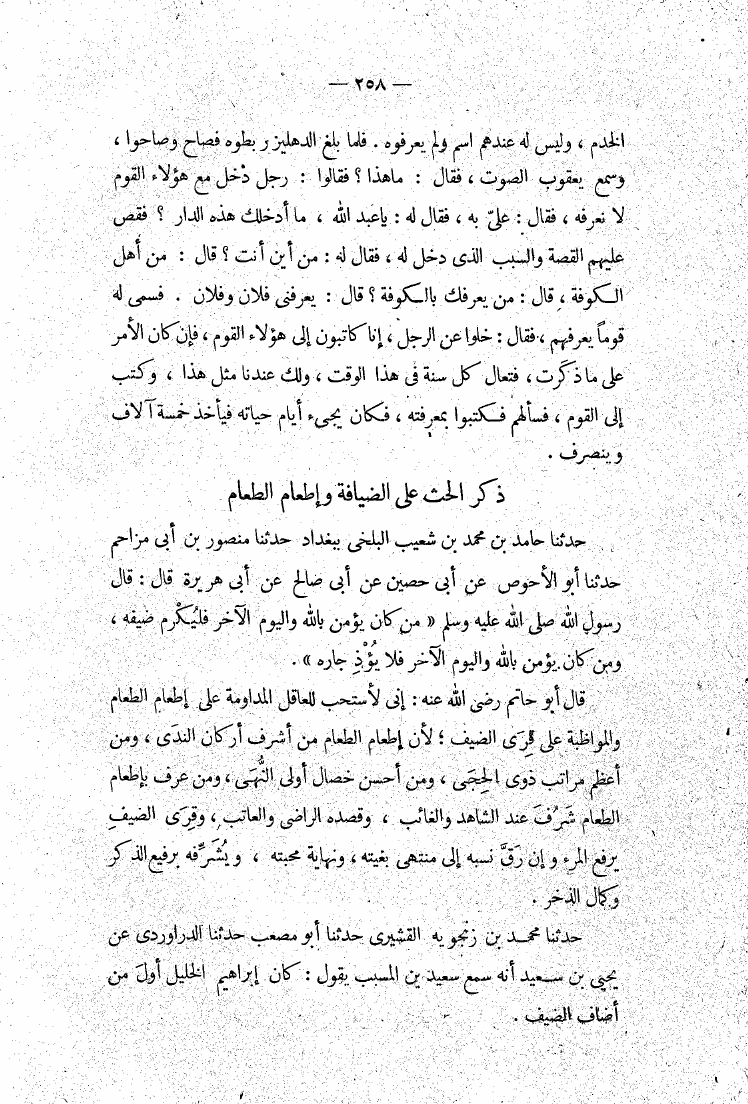 — ٢٥٨ —
الخدم ، وليس له عندهم اسم ولم يعرفوه . فلما بلغ الدهليز ربطوه فصاح وصاحوا ،
وسمع يعقوب الصوت ، فقال : ماهذا ؟ فقالوا : رجل دخل مع هؤلاء القوم
لا نعرفه ، فقال : علىّ به ، فقال له : ياعبد الله ، ما أدخلك هذه الدار ؟ فقص
عليهم القصة والسبب الذى دخل له ، فقال له : من أين أنت ؟ قال : من أهل
الكوفة ، قال : من يعرفك بالكوفة ؟ قال : يعرفنى فلان وفلان . فسمى له
قوماً يعرفهم ، فقال : خلوا عن الرجل ، إنا كاتبون إلى هؤلاء القوم ، فإن كان الأمر
على ما ذكَرت ، فتعال كل سنة فى هذا الوقت ، ولك عندنا مثل هذا ، وكتب
إلى القوم ، فسألهم فكتبوا بمعرفته ، فكان يجىء أيام حياته فيأخذ خمسة آلاف
وينصرف .
ذكر الحث على الضيافة وإطعام الطعام
حدثنا حامد بن محمد بن شعيب البلخى ببغداد حدثنا منصور بن أبى مزاحم
حدثنا أبو الأحوص عن أبى حصين عن أبى صالح عن أبى هريرة قال : قال
رسول الله صلى الله عليه وسلم « من كان يؤمن بالله واليوم الآخر فليُكْرم ضيفه ،
ومن كان يؤمن بالله واليوم الآخر فلا يُؤْذِ جاره » .
قال أبو حاتم رضى الله عنه : إنى لأستحب للعاقل المداومة على إطعام الطعام
والمواظبة على قِرَى الضيف ؛ لأن إطعام الطعام من أشرف أركان الندَى ، ومن
أعظم مراتب ذوى الحِجَى ، ومن أحسن خصال أولى النُّهَى ، ومن عرف بإطعام
الطعام شَرُفَ عند الشاهد والغائب ، وقصده الراضى والعاتب ، وقِرَى الضيفِ
يرفع المرء وإن رَقَّ نسبه إلى منتهى بغيته ، ونهاية محبته ، ويُشَرِّفه برفيع الذكر
وكمال الذخر .
حدثنا محمد بن زنجويه القشيرى حدثنا أبو مصعب حدثنا الدراوردى عن
يحيى بن سعيد أنه سمع سعيد بن المسبب يقول : كان إبراهيم الخليل أولَ من
أضاف الضيف .